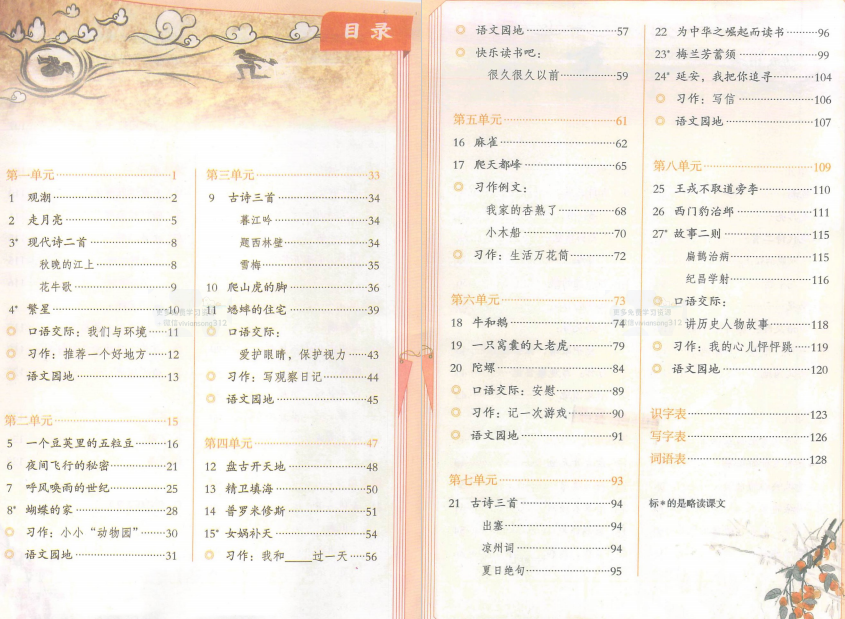 目录
第一单元 1
1 观潮 2
2 走月亮 5
3* 现代诗二首 8
秋晚的江上 8
花牛歌 9
4* 繁星 10
口语交际：我们与环境 11
习作：推荐一个好地方 12
语文园地 13
第二单元 15
5 一个豆荚里的五粒豆 16
6 夜间飞行的秘密 21
7 呼风唤雨的世纪 25
8* 蝴蝶的家 28
习作：小小“动物园” 30
语文园地 31
第三单元 33
9 古诗三首 34
暮江吟 34
题西林壁 34
雪梅 35
10 爬山虎的脚 36
11 蟋蟀的住宅 39
口语交际：
爱护眼睛，保护视力 43
习作：写观察日记 44
语文园地 45
第四单元 47
12 盘古开天地 48
13 精卫填海 50
14 普罗米修斯 51
15* 女娲补天 54
习作：我和____过一天 56
语文园地 57
快乐读书吧：
很久很久以前 59
第五单元 61
16 麻雀 62
17 爬天都峰 65
习作例文：
我家的杏熟了 68
小木船 70
习作：生活万花筒 72
第六单元 73
18 牛和鹅 74
19 一只窝囊的大老虎 79
20 陀螺 84
口语交际：安慰 89
习作：记一次游戏 90
语文园地 91
第七单元 93
21 古诗三首 94
出塞 94
凉州词 94
夏日绝句 95
22 为中华之崛起而读书 96
23* 梅兰芳蓄须 99
24* 延安，我把你追寻 104
习作：写信 106
语文园地 107
第八单元 109
25 王戎不取道旁李 110
26 西门豹治邺 111
27* 故事二则 115
扁鹊治病 115
纪昌学射 116
口语交际：
讲历史人物故事 118
习作：我的心儿怦怦跳 119
语文园地 120
识字表 123
写字表 126
词语表 128
标*的是略读课文